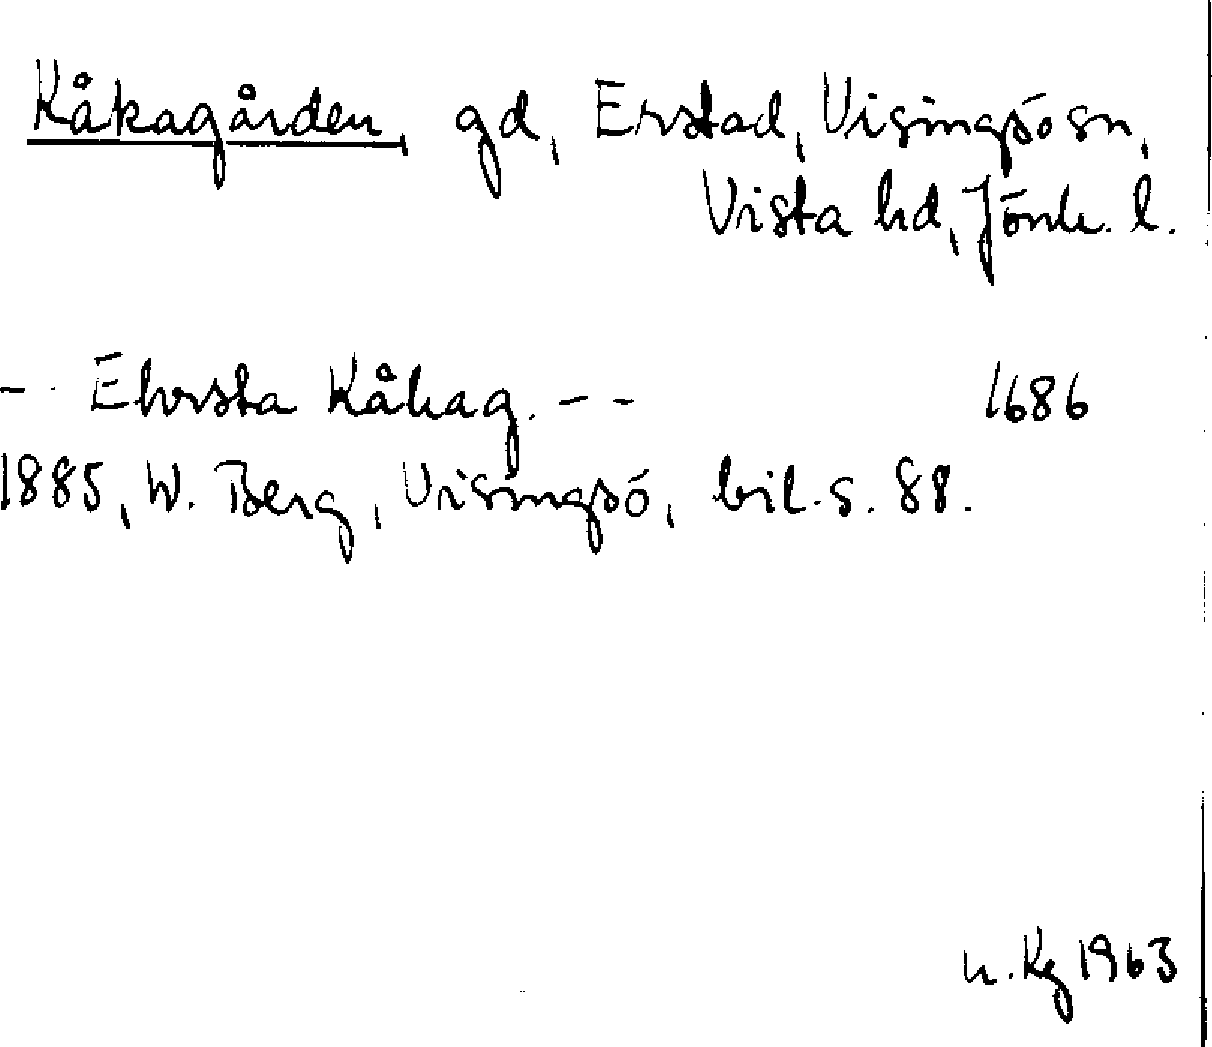 Kåkagården, gd, Erstad, Visingsö sn,
Vista hd, Jönk. l.
- - Ehrsta Kåkag. - - 1686
1885, W. Berg, Visingsö, bil. s. 88.
n. Kg 1963